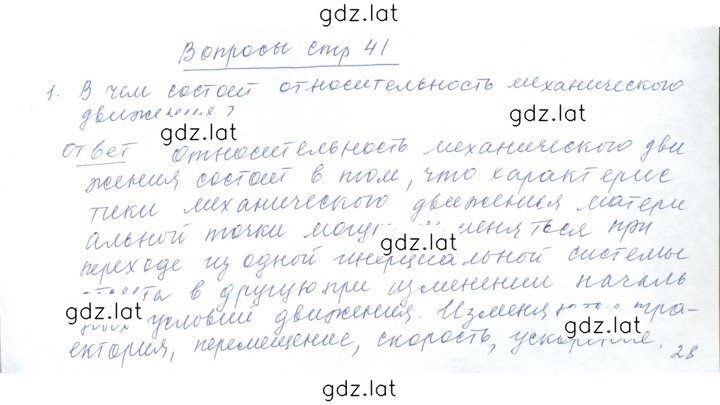 gdz.lat
Вопросы стр 41
1. В чем состоит относительность механического
движения?
gdz.lat
Ответ Относительность механического дви
жения состоит в том, что характерис
gdz.lat
тики механического движения матери
альной точки могут изменяться при
gdz.lat
переходе из одной инерциальной системы
в другую при изменении началь
gdz.lat
условий движения. Изменяются тра-
gdz.lat
ектория, перемещение, скорость, ускорение.
28
gdz.lat